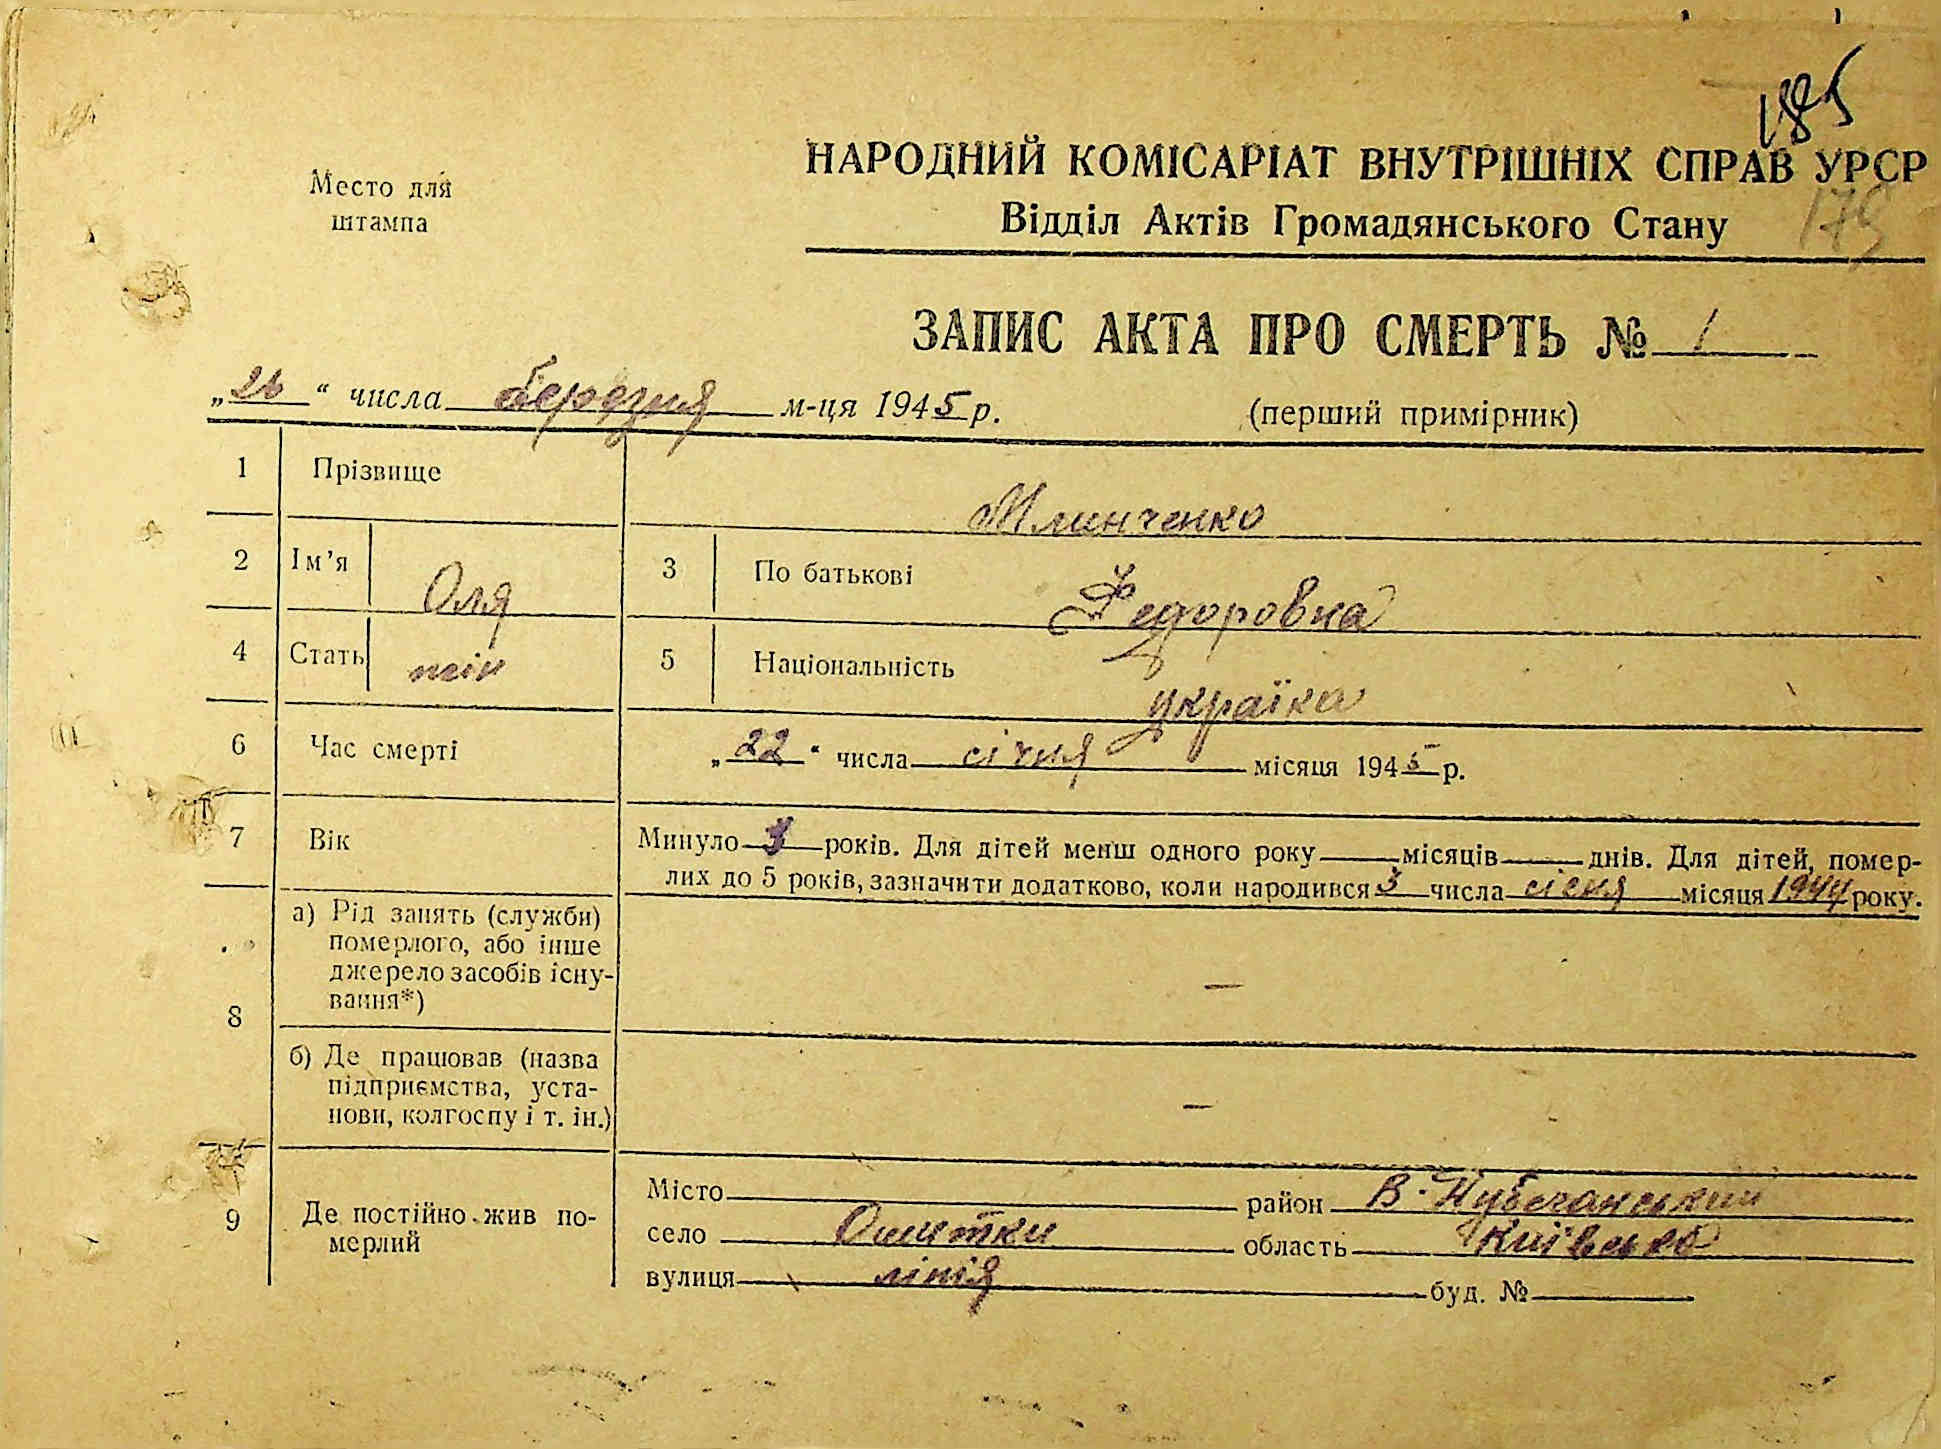 185
Место для
штампа
НАРОДНИЙ КОМІСАРІАТ ВНУТРІШНІХ СПРАВ УРСР
Відділ Актів Громадянського Стану
ЗАПИС АКТА ПРО СМЕРТЬ № 1
„26“ числа березня м-ця 1945 р.
(перший примірник)
1 Прізвище Млинченко
2 Ім'я Оля 3 По батькові Федоровна
4 Стать жін 5 Національність україка
6 Час смерті „22“ числа січня місяця 1945 р.
7 Вік Минуло років. Для дітей менш одного року місяців днів. Для дітей, помер-
лих до 5 років, зазначити додатково, коли народився 3 числа січня місяця 1944 року.
8 а) Рід занять (служби)
померлого, або інше
джерело засобів існу-
вання*) —
б) Де працював (назва
підприємства, уста-
нови, колгоспу і т. ін.) —
9 Де постійно жив по-
мерлий
Місто район В-Дубечанський
село Ошитки область Київська
вулиця лінія буд. №